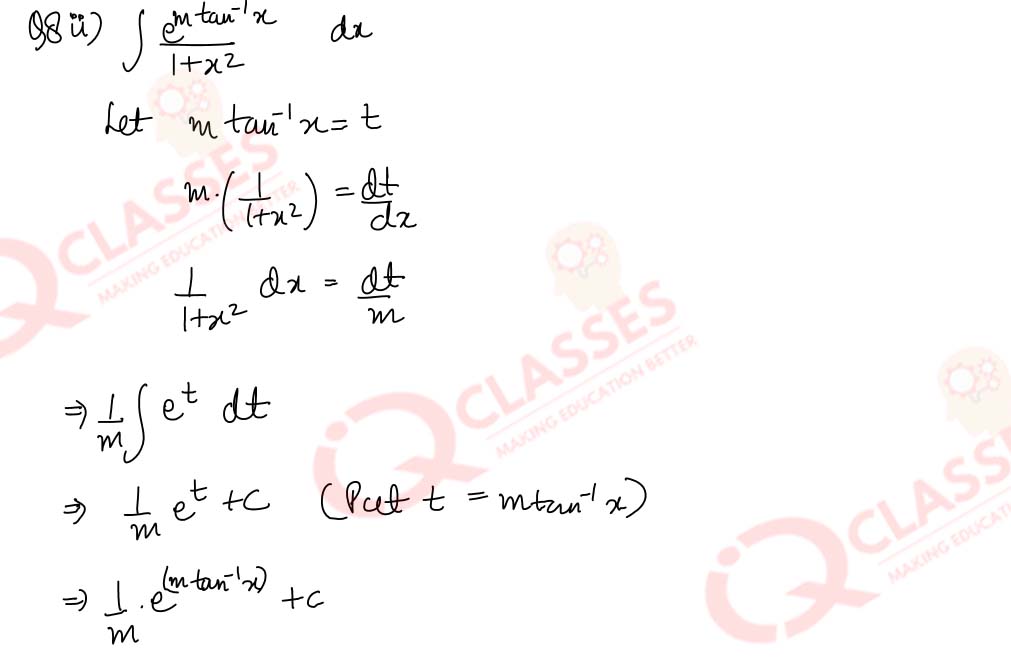 Q8 ii) ∫ e^(m tan⁻¹x) / (1+x²) dx
Let m tan⁻¹x = t
m·(1/(1+x²)) = dt/dx
1/(1+x²) dx = dt/m
⇒ 1/m ∫ e^t dt
⇒ 1/m e^t + c (Put t = m tan⁻¹x)
⇒ 1/m . e^(m tan⁻¹x) + c
IQ CLASSES
MAKING EDUCATION BETTER
IQ CLASSES
MAKING EDUCATION BETTER
IQ CLASSES
MAKING EDUCAT